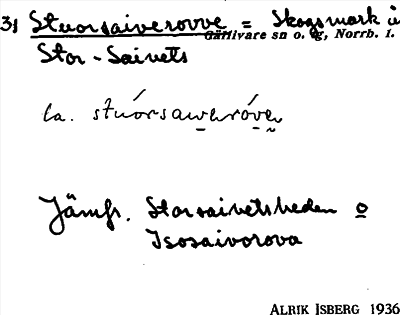 31 Stuorsaiverovve = Skogsmark i
Gällivare sn o. tg, Norrb. l.
Stor-Saivets
la. stúorsawwróvev
Jämfr. Storsaivetsheden o
Isosaivorova
ALRIK ISBERG 1936